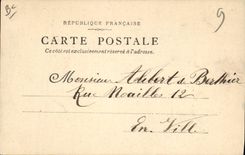 RÉPUBLIQUE FRANÇAISE
CARTE POSTALE
Ce côté est exclusivement réservé à l'adresse.
Monsieur Albert de Berthier
Rue Noailles 12
En Ville